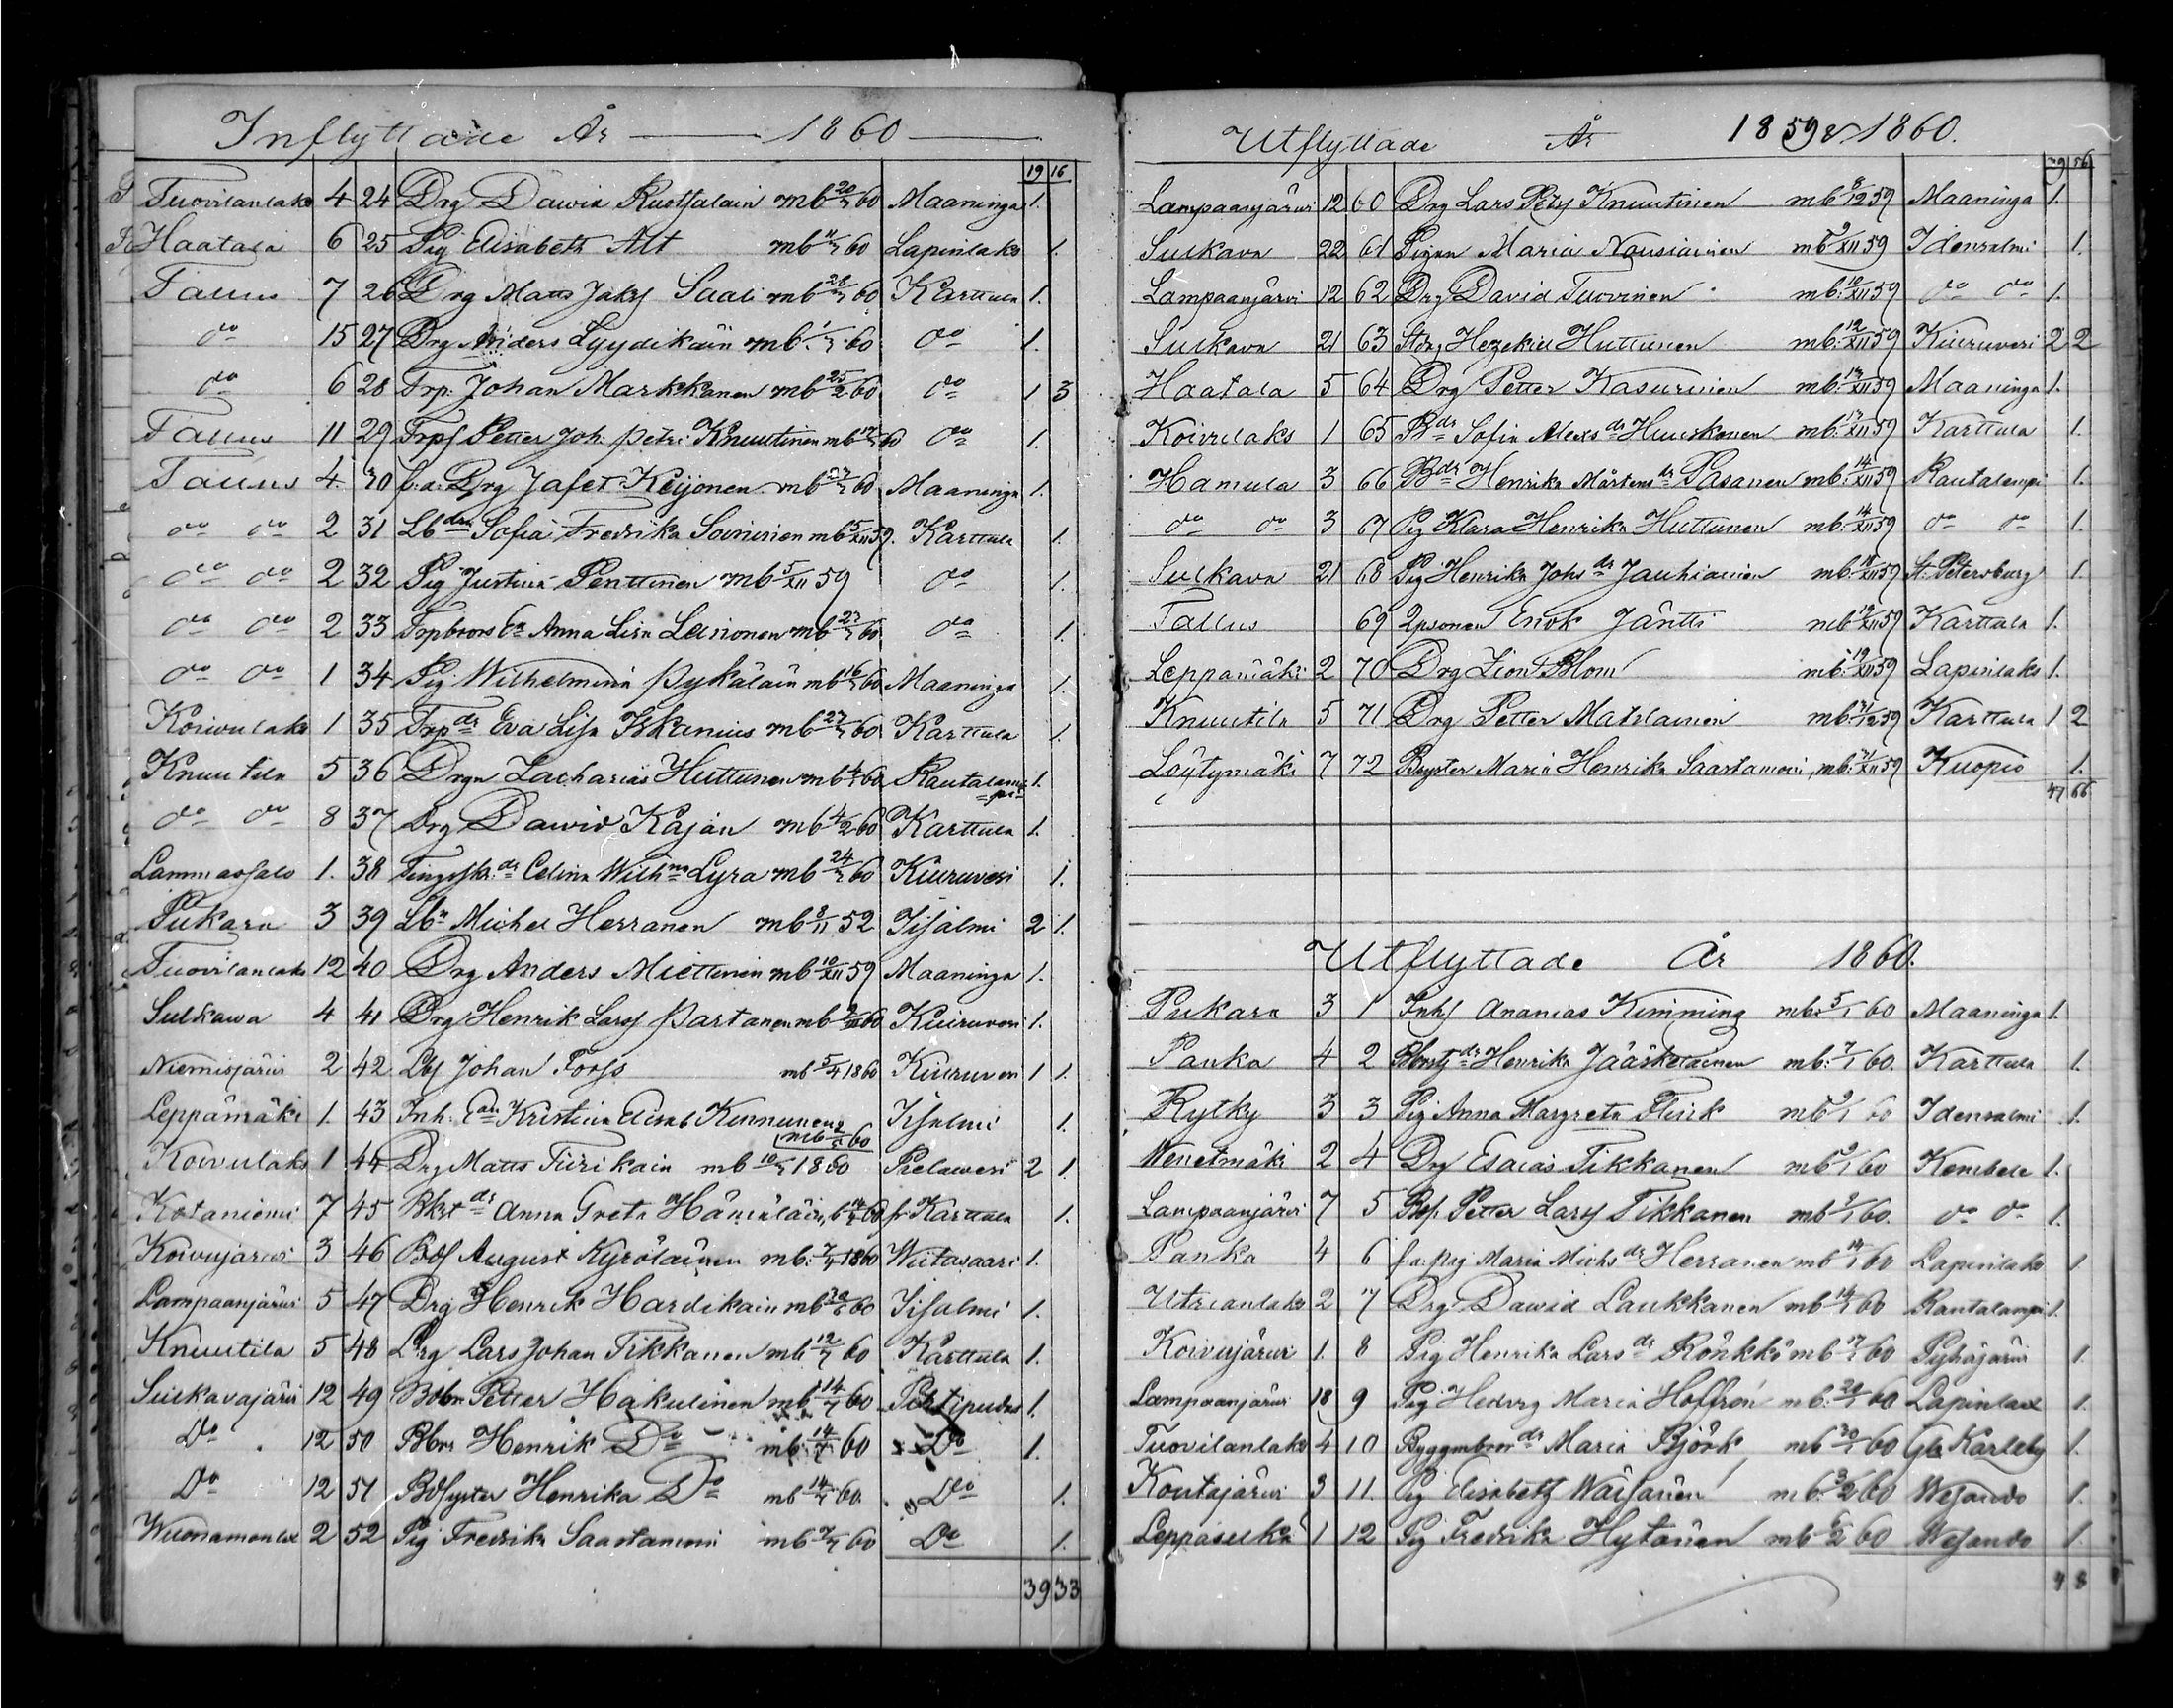 Inflyttade År 1860
19 16
Tuovilanlaks 4 24 Drg Dawid Ruotsalain mb 20/3 60 Maaninga 1.
Haatala 6 25 Pig Elisabeth Alt mb 11/3 60 Lapinlaks 1.
Tallus 7 26 Drg Matts Jaksf Saali mb 28/3 60 Karttula 1.
do 15 27 Drg Anders Lyydikäin mb 1/3 60 do 1.
do 6 28 Trp. Johan Markkanen mb 25/2 60 do 1 3
Tallus 11 29 Trpf Petter Joh. Petri Knuutinen mb 60 do 1.
Tallus 4. 30 f.a. Drg Jafet Keijonen mb 60 Maaninga 1.
do do 2 31 Lbdr Sofia Fredrika Soininen mb 5/XII 59. Karttula 1.
do do 2 32 Pig Justina Penttinen mb 5/XII 59 do 1.
do do 2 33 Anna Lisa Leinonen mb 60 do 1.
do do 1 34 Pig Wilhelmina Pykäläin mb 16/3 60 Maaninga 1.
Koivulaks 1 35 Trpdr Eva Lisa Iskanius mb 60 Karttula 1.
Knuutila 5 36 Drgn Zacharias Huttunen mb 60 Rautalampi 1.
do do 8 37 Drg Dawid Kajan mb 4/2 60 Karttula 1.
Lammassalo 1. 38 dr Celina Wilhna Lyra mb 24/3 60 Kiuruvesi 1.
Pukara 3 39 Lbn Michel Herranen mb 8/11 52 Iisalmi 2 1.
Tuovilanlaks 12 40 Drg Anders Miettinen mb 10/XII 59 Maaninga 1.
Sulkawa 4 41 Drg Henrik Larsf Partanen mb 60 Kiuruvesi 1.
Niemisjärvi 2 42 Johan Forss mb 5/4 1860 Kiuruvesi 1 1.
Leppämäki 1. 43 Inh. Kristina Elisab Kinnunen mb 60 Iisalmi 1.
Koivulaks 1 44 Drg Matts Tiirikain mb 10/3 1860 Pielavesi 2 1.
Kotaniemi 7 45 dr Anna Greta Hämäläin, 60 fr Karttula 1.
Koivujärvi 3 46 Bdf August Kyröläinen mb. 7/4 1860 Wiitasaari 1.
Lampaanjärvi 5 47 Drg Henrik Hardikain mb 60 Iisalmi 1.
Knuutila 5 48 Drg Lars Johan Tikkanen mb. 12/7 60 Karttula 1.
Sulkavajärvi 12 49 Petter Hakulinen mb 14/7 60 Pihtipudas 1.
Do 12 50 Henrik Do mb. 14/7 60 Do 1.
Do 12 51 Henrika Do mb 14/7 60 Do 1.
Wuonamonlax 2 52 Pig Fredrika Saastamoin mb 60 Do 1.
39 33
Utflyttade År 1859 & 1860.
39 56
Lampaanjärvi 12 60 Drg Lars Petsf Knuutinen mb 8/12 59 Maaninga 1.
Sulkava 22 61 Pigan Maria Nousiainen mb 9/XII 59 Idensalmi 1.
Lampaanjärvi 12 62 Drg David Tuovinen mb: 10/XII 59 do do 1.
Sulkava 21 63 Hezekiel Huttunen mb: 12/XII 59 Kiuruvesi 2 2
Haatala 5 64 Drg Petter Kasurinen mb: 13/XII 59 Maaninga 1.
Koivulaks 1 65 Bdr Sofia Alexsdr Huuskonen mb: 13/XII 59 Karttula 1.
Hamula 3 66 Bdr Henrika Mårtensdr Pasanen mb: 14/XII 59 Rautalampi 1.
do do 3 67 Pig Klara Henrika Huttunen mb: 14/XII 59 do do 1.
Sulkava 21 68 Pig Henrika Johsdr Jauhiainen mb: 59 St. Petersburg 1.
Tallus 69 Enok Jäntti mb 19/XII 59 Karttula 1.
Leppämäki 2 70 Drg Zion Blom mb: 19/XII 59 Lapinlaks 1.
Knuutila 5 71 Drg Petter Matilainen mb: 21/12 59 Karttula 1 2
Löytymäki 7 72 Maria Henrika Saastamoin, mb: 59 Kuopio 1.
47 66
Utflyttade År 1860.
Pukara 3 1 Inhf Ananias Kimming mb: 5/1 60 Maaninga 1.
Panka 4 2 dr Henrika Jääskeläinen mb: 7/1 60. Karttula 1.
Rytky 3 3 Pig Anna Margreta Flink mb 9/1 60 Idensalmi 1.
Wenetmäki 2 4 Drg Esaias Tikkanen mb 9/1 60 Kembele 1.
Lampaanjärvi 7 5 Petter Larsf Tikkanen mb 9/1 60. do do 1.
Panka 4 6 f.a. pig Maria Michsdr Herranen mb 14/1 60 Lapinlaks 1
Utrianlaks 2 7 Drg Dawid Laukkanen mb 14/1 60 Rautalampi 1.
Koivujärvi 1. 8 Pig Henrika Larsdr Rönkkö mb 17/1 60 Pyhäjärvi 1.
Lampaanjärvi 18 9 Pig Hedvig Maria Hoffrén mb: 60 Lapinlax 1.
Tuovilanlaks 4 10 dr Maria Björk mb 60 Gla Karleby 1.
Koutajärvi 3 11. Pig Elisabeth Wäisänen mb: 3/2 60 Wesando 1.
Leppäselkä 1 12 Pig Fredrika Hytönen mb 60 Wesando 1.
4 8